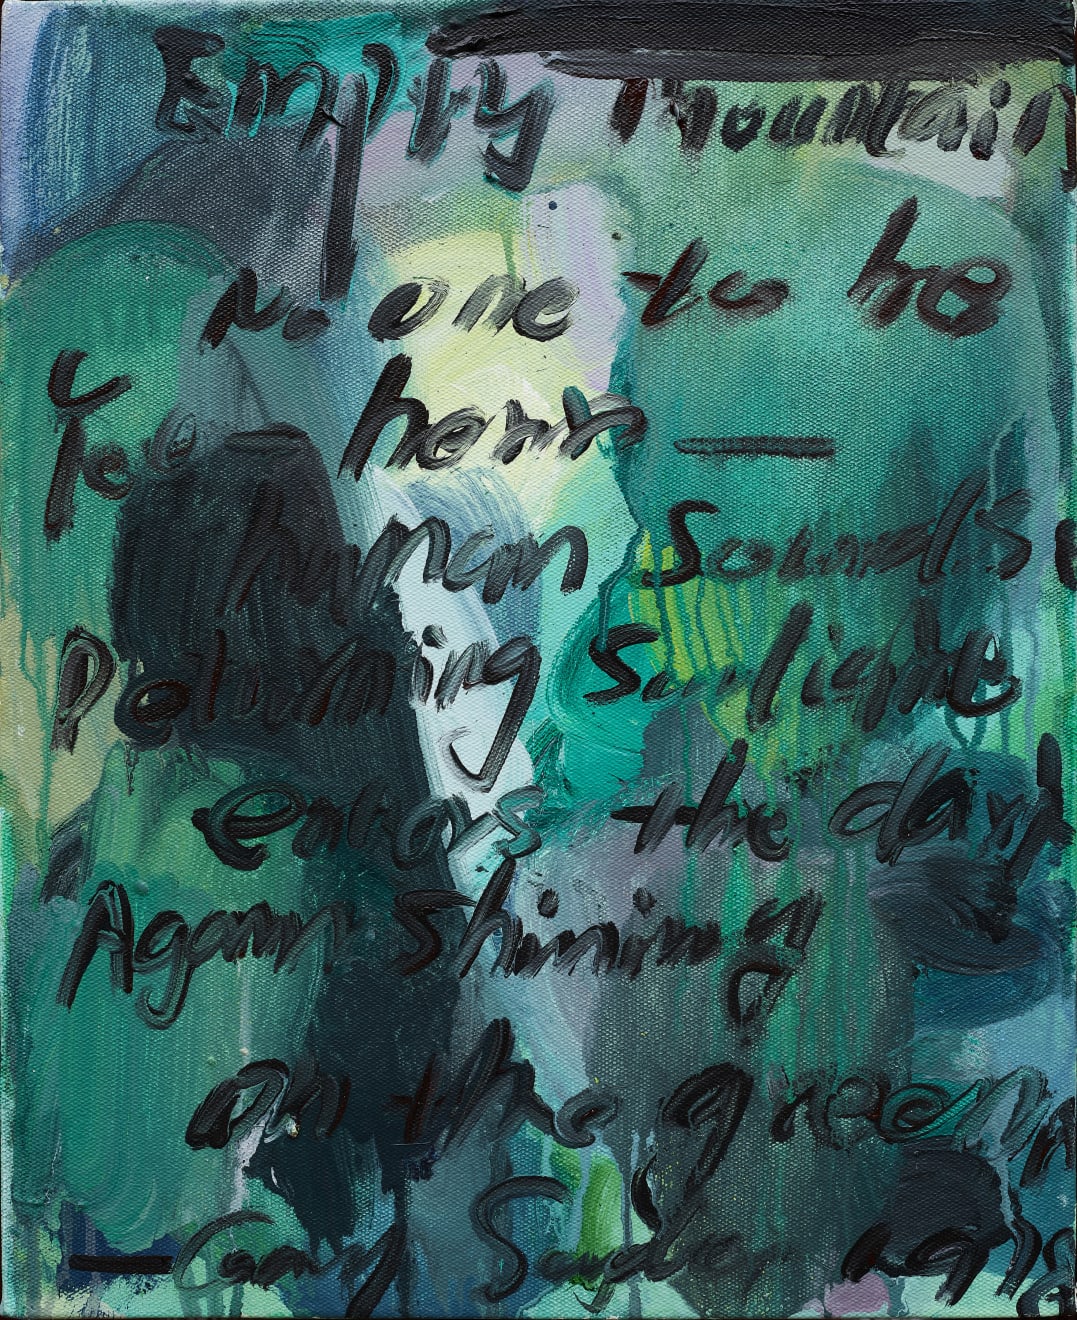 Empty Mountain
No one to be
— hear —
human sounds
Returning Sunlight
enters the dark
Again shining
on the green
— Gary Snyder